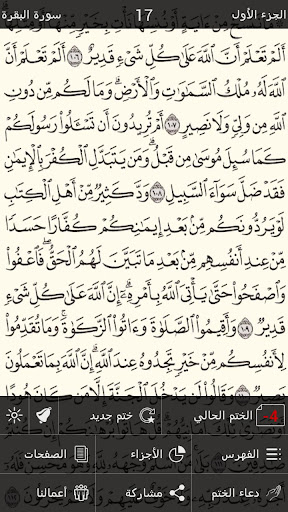 الجزء الأول 17 سورة البقرة
أَلَمْ تَعْلَمْ أَنَّ ٱللَّهَ عَلَىٰ كُلِّ شَىْءٍ قَدِيرٌ ١٠٦ أَلَمْ تَعْلَمْ أَنَّ
ٱللَّهَ لَهُۥ مُلْكُ ٱلسَّمَٰوَٰتِ وَٱلْأَرْضِ وَمَا لَكُم مِّن دُونِ
ٱللَّهِ مِن وَلِىٍّ وَلَا نَصِيرٍ ١٠٧ أَمْ تُرِيدُونَ أَن تَسْـَٔلُوا۟ رَسُولَكُمْ
كَمَا سُئِلَ مُوسَىٰ مِن قَبْلُ وَمَن يَتَبَدَّلِ ٱلْكُفْرَ بِٱلْإِيمَٰنِ
فَقَدْ ضَلَّ سَوَآءَ ٱلسَّبِيلِ ١٠٨ وَدَّ كَثِيرٌ مِّنْ أَهْلِ ٱلْكِتَٰبِ
لَوْ يَرُدُّونَكُم مِّنۢ بَعْدِ إِيمَٰنِكُمْ كُفَّارًا حَسَدًا
مِّنْ عِندِ أَنفُسِهِم مِّنۢ بَعْدِ مَا تَبَيَّنَ لَهُمُ ٱلْحَقُّ فَٱعْفُوا۟
وَٱصْفَحُوا۟ حَتَّىٰ يَأْتِىَ ٱللَّهُ بِأَمْرِهِۦٓ إِنَّ ٱللَّهَ عَلَىٰ كُلِّ شَىْءٍ
قَدِيرٌ ١٠٩ وَأَقِيمُوا۟ ٱلصَّلَوٰةَ وَءَاتُوا۟ ٱلزَّكَوٰةَ وَمَا تُقَدِّمُوا۟
لِأَنفُسِكُم مِّنْ خَيْرٍ تَجِدُوهُ عِندَ ٱللَّهِ إِنَّ ٱللَّهَ بِمَا تَعْمَلُونَ
الختم الحالي -4 ختم جديد
الفهرس الأجزاء الصفحات
دعاء الختم مشاركة أعمالنا